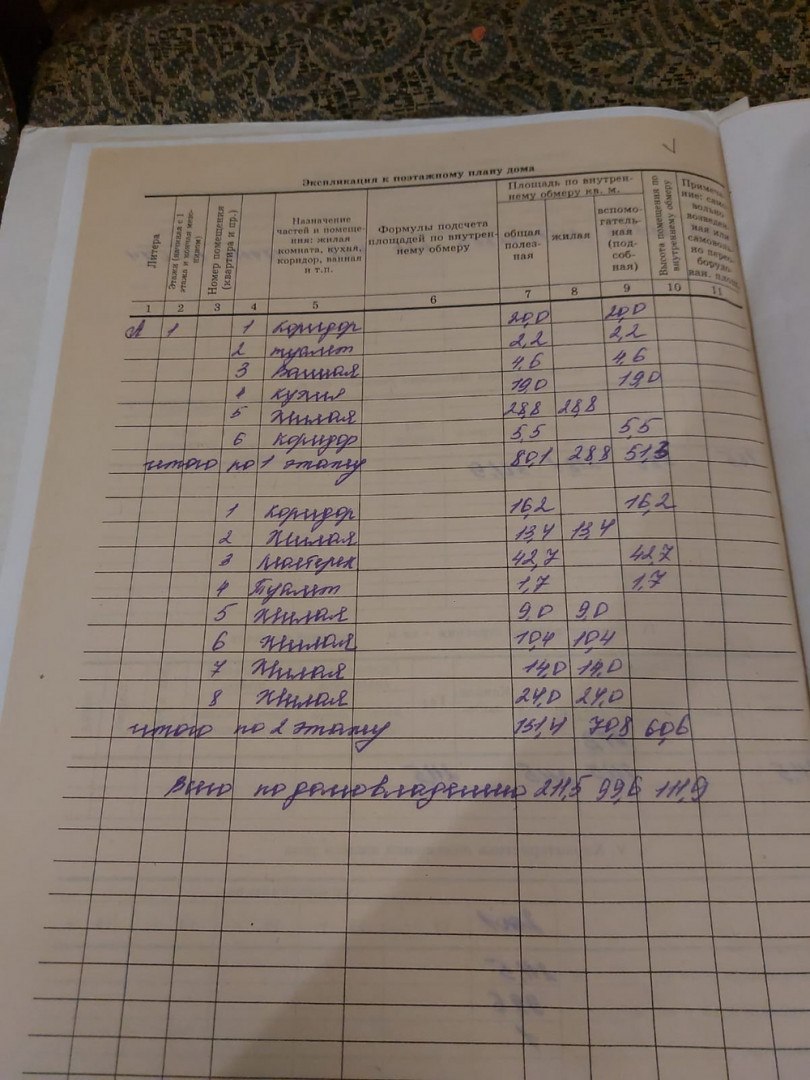 Экспликация к поэтажному плану дома
Литера
Этажи (начиная с 1 этажа и кончая мезонином)
Номер помещения (квартира и пр.)
Назначение частей и помещения: жилая комната, кухня, коридор, ванная и т.п.
Формулы подсчета площадей по внутреннему обмеру
Площадь по внутреннему обмеру кв. м.
общая полезная
жилая
вспомогательная (подсобная)
Высота помещения по внутреннему обмеру
1 2 3 4 5 6 7 8 9 10 11
А 1 1 коридор 20,0 20,0
2 туалет 2,2 2,2
3 Ванная 4,6 4,6
4 кухня 19,0 19,0
5 Жилая 28,8 28,8
6 коридор 5,5 5,5
итого по 1 этажу 80,1 28,8 51,3
1 коридор 16,2 16,2
2 Жилая 13,4 13,4
3 мастерск 42,7 42,7
4 Туалет 1,7 1,7
5 Жилая 9,0 9,0
6 Жилая 10,4 10,4
7 Жилая 14,0 14,0
8 Жилая 24,0 24,0
итого по 2 этажу 131,4 70,8 60,6
Всего по домовладению 211,5 99,6 111,9